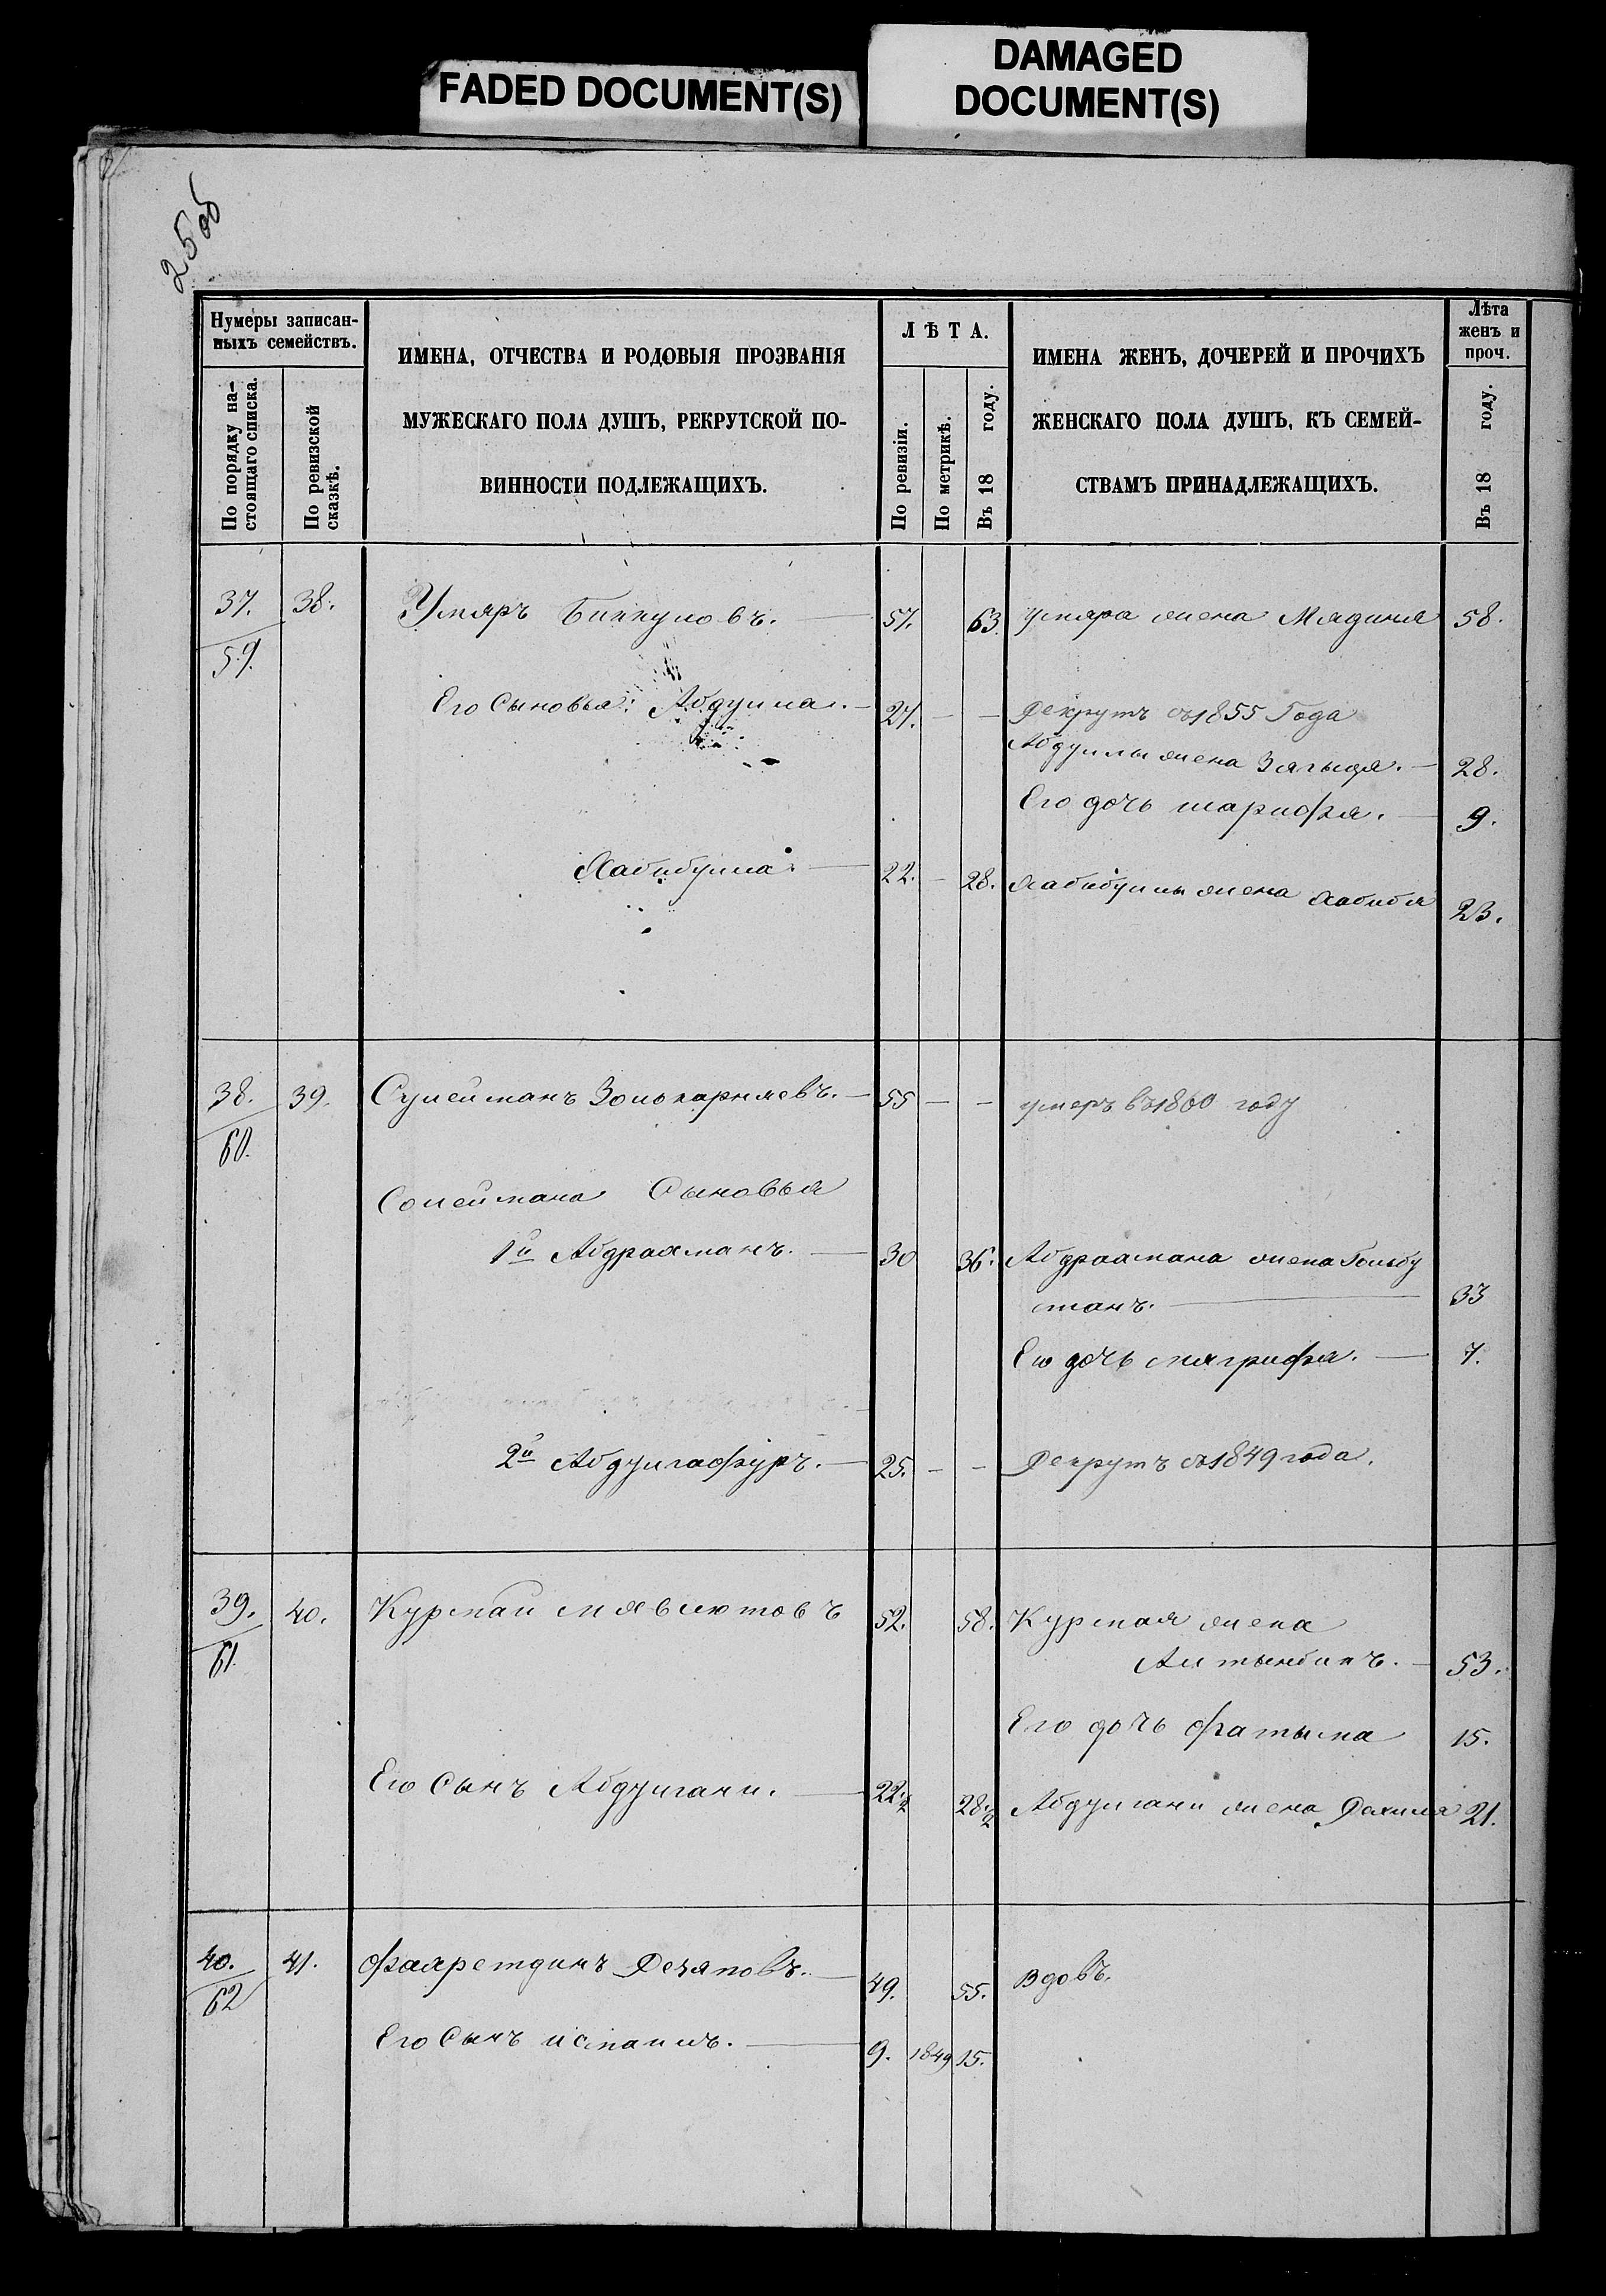 FADED DOCUMENT(S)
DAMAGED
DOCUMENT(S)
25об
Нумеры записан-
ныхъ семействъ.
По порядку на-
стоящаго списка.
По ревизской
сказкѣ.
ИМЕНА, ОТЧЕСТВА И РОДОВЫЯ ПРОЗВАНІЯ
МУЖЕСКАГО ПОЛА ДУШЪ, РЕКРУТСКОЙ ПО-
ВИННОСТИ ПОДЛЕЖАЩИХЪ.
ЛѢТА.
По ревизіи.
По метрикѣ.
Въ 18 году.
ИМЕНА ЖЕНЪ, ДОЧЕРЕЙ И ПРОЧИХЪ
ЖЕНСКАГО ПОЛА ДУШЪ, КЪ СЕМЕЙ-
СТВАМЪ ПРИНАДЛЕЖАЩИХЪ.
Лѣта
женъ и
проч.
Въ 18 году.
37. 38. Умяръ Биккуловъ. 57. 63. Умяра жена Мядиня 58.
59.
Его Сыновья: Абдулла. 27. — — Рекрутъ съ 1855 Года
Абдуллы жена Зягыдя. 28.
Его дочь шарифя. 9.
Хабибулла. 22. — 28. Хабибуллы жена Хабибя 23.
38. 39. Сулейманъ Золькарняевъ. 55 — — умеръ въ 1860 году
60.
Солеймана Сыновья
1й Абдрахманъ. 30 36. Абдрахмана жена Гольбу
станъ. 33
Его дочь мягрифя. 7.
2й Абдулгафуръ. 25. — — Рекрутъ съ 1849 года.
39. 40. Курмай мявлютовъ 52. 58. Курмая жена
61. Алтынбикъ. 53.
Его дочь фатыма 15.
Его Сынъ Абдулгани. 22.½ 28.½ Абдулгани жена Рахиля 21.
40. 41. фахретдинъ Резяповъ. 49. 55. вдовъ.
62
Его Сынъ исмаилъ. 9. 1849 15.